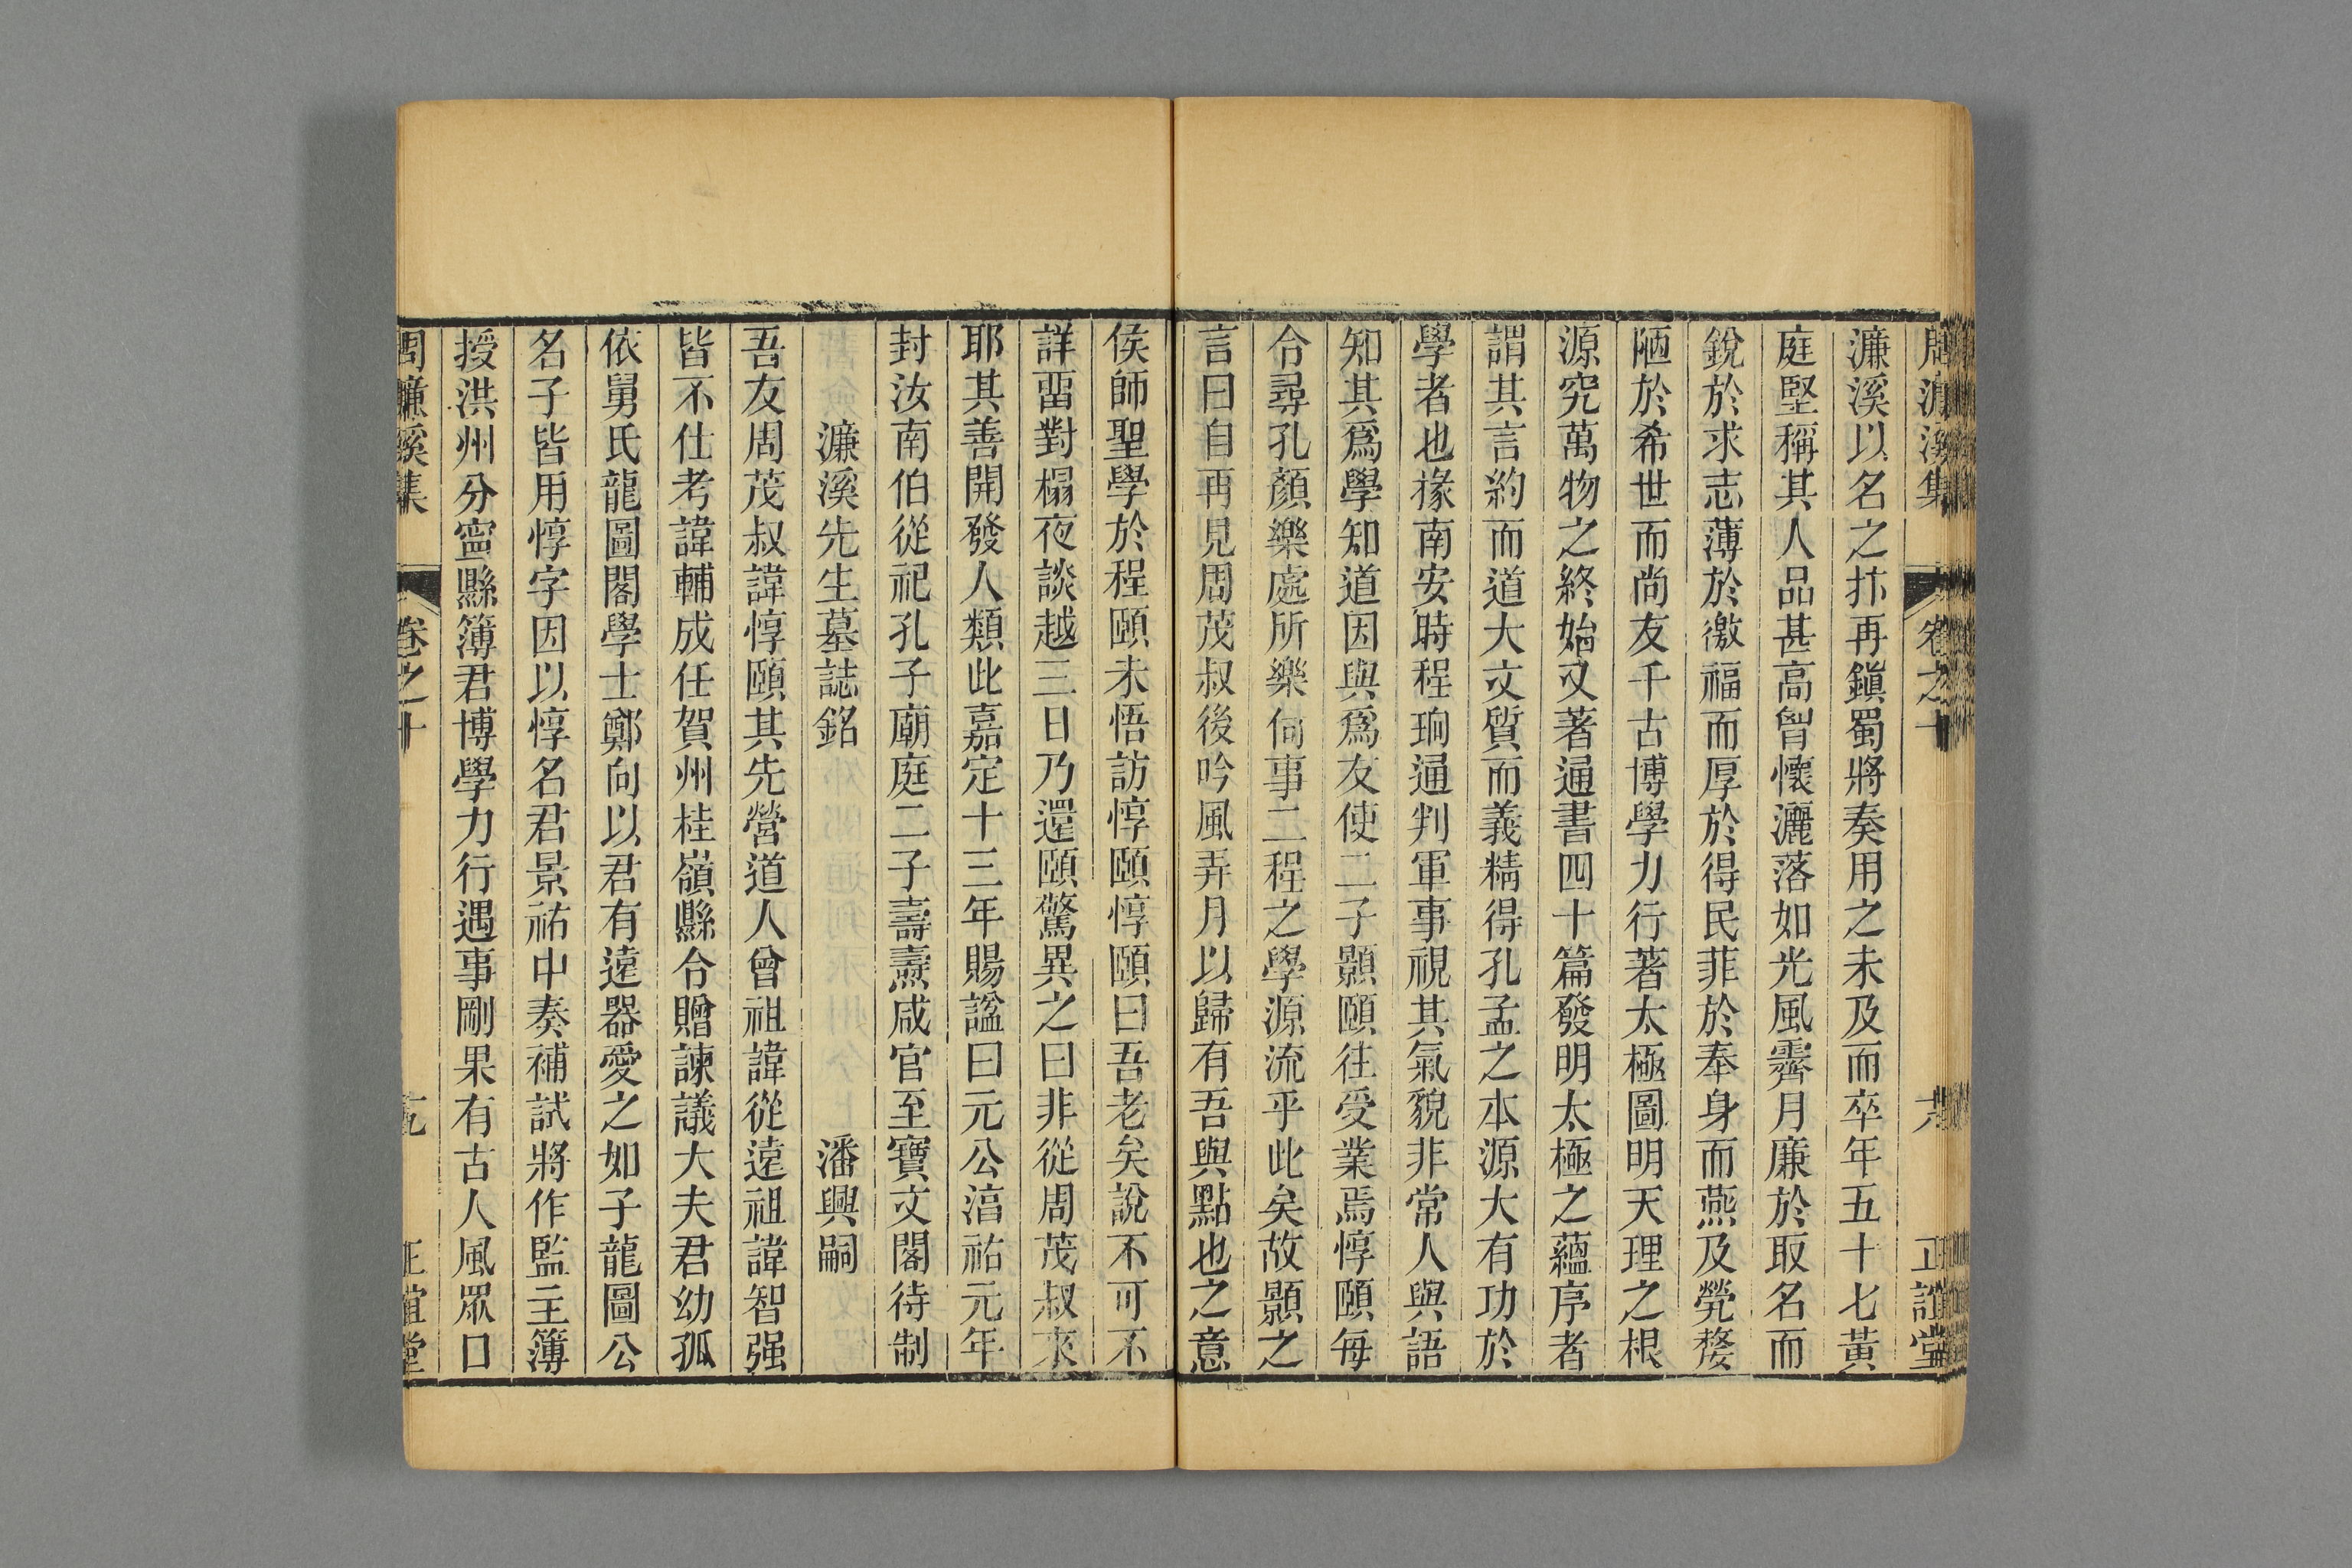 周濂溪集 卷之十 六 正誼堂
濂溪以名之抃再鎭蜀將奏用之未及而卒年五十七黃
庭堅稱其人品甚高胷懷灑落如光風霽月廉於取名而
銳於求志薄於徼福而厚於得民菲於奉身而燕及煢嫠
陋於希世而尚友千古博學力行著太極圖明天理之根
源究萬物之終始又著通書四十篇發明太極之蘊序者
謂其言約而道大文質而義精得孔孟之本源大有功於
學者也掾南安時程珦通判軍事視其氣貌非常人與語
知其爲學知道因與爲友使二子顥頤往受業焉惇頤每
令尋孔顏樂處所樂何事二程之學源流乎此矣故顥之
言曰自再見周茂叔後吟風弄月以歸有吾與點也之意
侯師聖學於程頤未悟訪惇頤惇頤曰吾老矣說不可不
詳畱對榻夜談越三日乃還頤驚異之曰非從周茂叔來
耶其善開發人類此嘉定十三年賜諡曰元公湻祐元年
封汝南伯從祀孔子廟庭二子壽燾咸官至寶文閣待制
濂溪先生墓誌銘 潘興嗣
吾友周茂叔諱惇頤其先營道人曾祖諱從遠祖諱智强
皆不仕考諱輔成任賀州桂嶺縣令贈諫議大夫君幼孤
依舅氏龍圖閣學士鄭向以君有遠器愛之如子龍圖公
名子皆用惇字因以惇名君景祐中奏補試將作監主簿
授洪州分寧縣簿君博學力行遇事剛果有古人風眾口
周濂溪集 卷之十 正誼堂